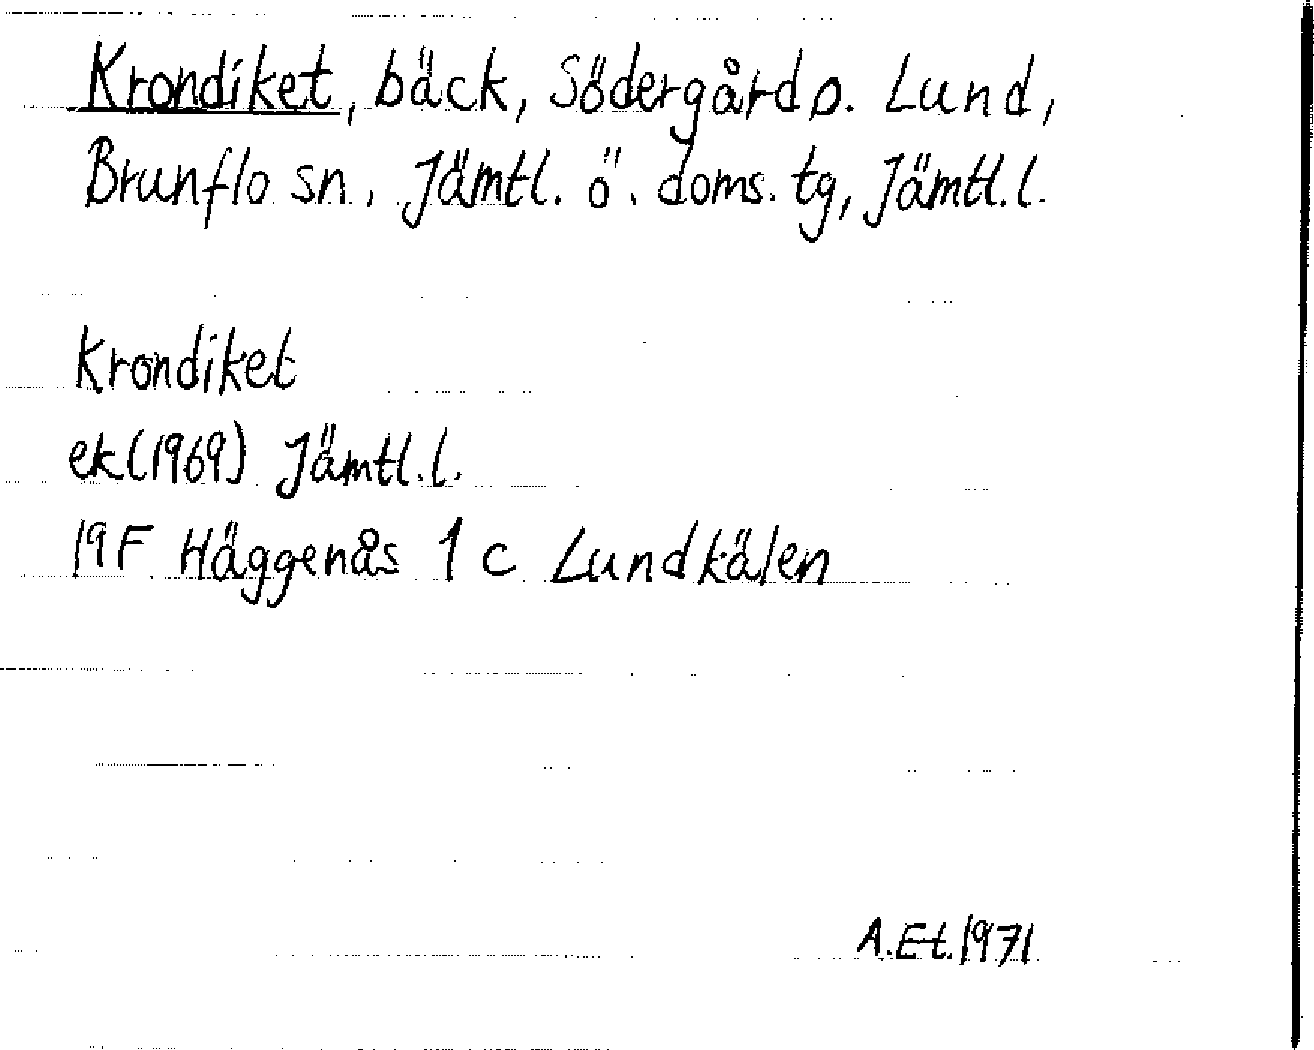 Krondiket, bäck, Södergård o. Lund,
Brunflo sn., Jämtl. ö. doms. tg, Jämtl.l.
Krondiket
ek(1969) Jämtl.l.
19F Häggenås 1c Lundkälen
A.Et.1971